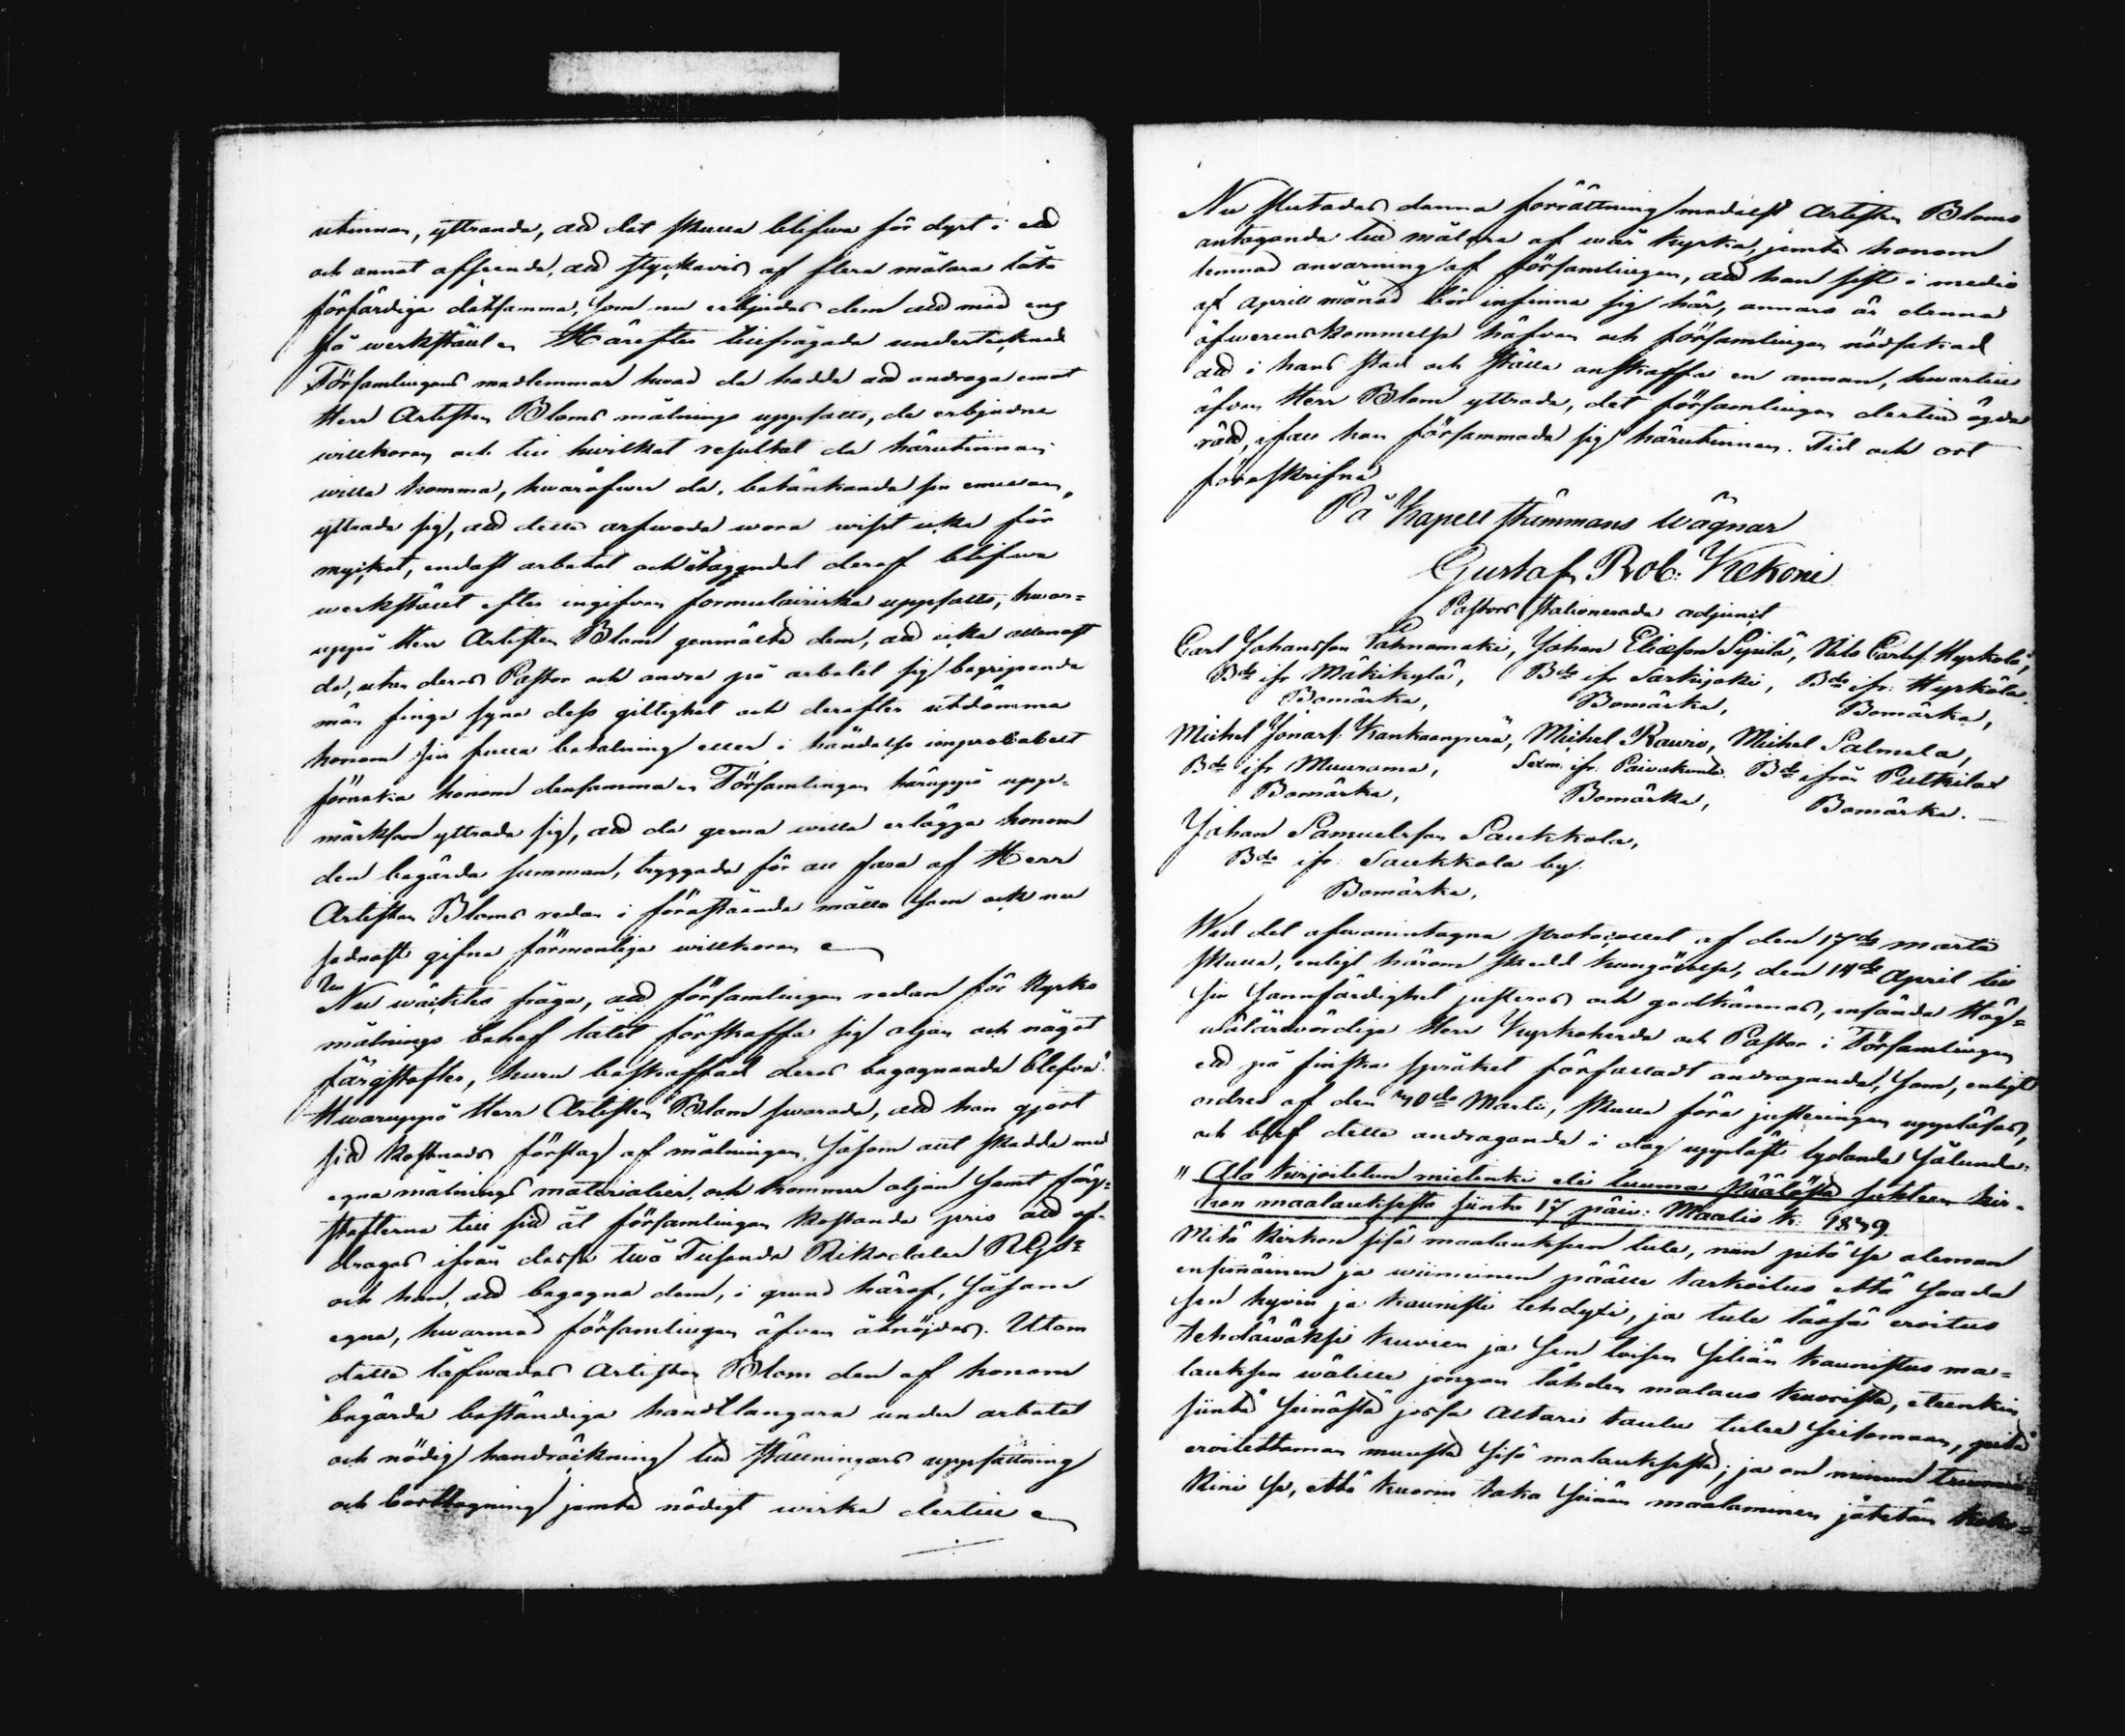 utinnan, yttrande, att det skulle blifva för dyrt i ett
och annat afseende, att styckevis af flera målare låta
förfärdiga detsamma, som nu erbjudes dem att med ens
få werkstäldt. Härefter tillfrågade undertecknad
Församlingens medlemmar hwad de hadde att andraga emot
Herr Artisten Bloms målnings uppsatts, de erbjudne
willkoren och till hwilket resultat de härutinnan
wille komma, hwaröfwer de, betänkande sin emellan,
yttrade sig, att detta arfwode wore wisst icke för
mycket, endast arbetet och åtagandet deraf blifwa
werkstält efter ingifven formulairiska uppsatts, hwar=
uppå Herr Artisten Blom genmälte dem, att icke allenast
de, utan deras Pastor och andra på arbetet sig begripande
män finge syna dess giltighet och derefter utdömma
honom sin fulla betalning eller i händelse improbabelt
förneka honom densamma. Församlingen häruppå upp=
märksam yttrade sig, att de gerna wille erlägga honom
den begärda summan, tryggade för all fara af Herr
Artisten Bloms redan i förestående måtto som ock nu
sednast gifna förmonliga willkoren
Nu wäcktes fråga, att församlingen redan för Kyrko
målnings behof låtit förskaffa sig oljan och något
färgstofter, huru beskaffad deras begagnande blefve?
Hwaruppå Herr Artisten Blom swarade, att han gjort
sitt kostnads förslag af målningen, såsom allt skedde med
egna målnings materialier, och kommer oljan samt färg=
stofterna till sitt åt församlingen kostande pris att af=
dragas ifrån dessa twå Tusende Riksdaler RGds
och han, att begagna dem, i grund häraf, såsom
egna, hwarmed församlingen äfven åtnöjdes. Utom
detta låfwades Artisten Blom den af honom
begärda beständiga handtlangare under arbetet
och nödig handräckning till ställningars uppsättning
och borttagning jemte nödigt wirke dertill
Nu slutades denna förrättning medelst Artisten Bloms
antagande till målare af wår kyrka, jemte honom
lemnad anvarning af församlingen, att han sist i medio
af Aprill månad bör infinna sig här, annars är denna
öfwerenskommelse häfven och församlingen nödsakad
att i hans stad och ställe anskaffa en annan, hwartill
äfven Herr Blom yttrade, det församlingen dertill ägde
rätt, ifall han försummade sig härutinnan. Tid och ort
föreskrifne
På Kapell stämmans wägnar
Gustaf Rob: Kekoni
Pastors stationerade adjunct
Carl Johansson Tahnamäki, Johan Eliæson Sipilä, Nils Carlss: Hyrkölä,
Bde ifr Mäkikylä, Bde ifr Särkijoki, Bde ifr: Hyrkölä.
Bomärke, Bomärke, Bomärke,
Michel Jonass: Kankaanperä, Michel Rawio, Michel Salmela,
Bde ifr Muurame, Sexm. ifr. Päivakunta. Bde ifrån Putkila
Bomärke, Bomärke, Bomärke.
Johan Samuelsson Saukkola,
Bde ifr: Saukkola by.
Bomärke.
Wed det ofwanintagna protocollet af den 17de Martii
skulle, enligt härom skedd kungörelse, den 14de April till
sin sannfärdighet justeras och godkännas, insände Hög=
wälärewördige Herr Kyrkoherde och Pastor i Församlingen
ett på finska språket författadt andragande, som, enligt
ordres af den 30de Martii, skulle före justeringen uppläsas,
och blef detta andragande i dag uppläst lydande sålunda:
" Alo kirjoitetun mietinki eli tuuma päälöstä sukteen kir=
kon maalauksesta siinto 17 päiv: Maalis k: 1849.
Mitä kirkon sisä maalauksen tule, niin pitä se oleman
ensimmäinen ja wiimeinen päälle tarkoitus että saada
sen hyvin ja kaunisti tehdyxi, ja tule tässä eroitus
tehdäwäksi kuvien ja sen toisen seliän kaunistus ma=
lauksen wälille jongan tähden malaus kuorissa, etenkin
siintä seinästä jossa altari taulu tulee seisomaan, pitä
eroitettaman muusta sisä malauksesta; ja on minun tuuma
kini se, että kuorin taka seinän maalaminen jätetän koko=